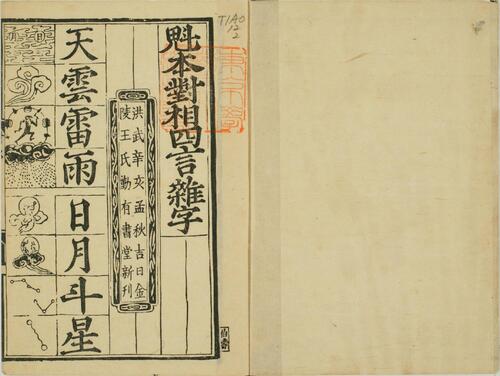 魁本對相四言雜字
洪武辛亥孟秋吉日金
陵王氏勤有書堂新刊
天雲雷雨
日月斗星
T1A0
12
2